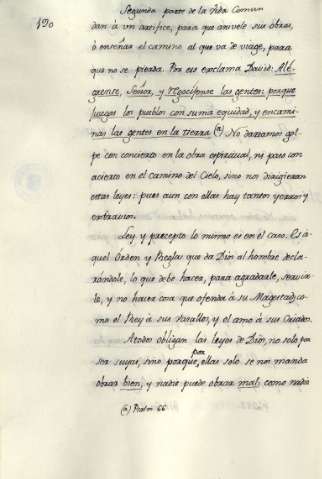 Segunda parte de la Vida Comun
120
dan à un artifice, para que arivele sus obras,
ò enseñar el camino al que va de viage, para
que no se pierda. Por eso exclama David: Ale-
grense, Señor, y regocijense las gentes: porque
juzgas los pueblos con suma equidad, y encami-
nas las gentes en la tierra (a) No dariamos gol-
pe con concierto en la obra espiritual, ni paso con
acierto en el camino del Cielo, sino nos dirigieran
estas leyes: pues aun con ellas hay tantos yerros y
extravios.
Ley y precepto lo mismo es en el caso. Es a-
quel Orden, y Regla que da Dios al hombre decla-
rándole, lo que debe hacer, para agradarle, servir-
le, y no hacer cosa que ofenda à su Magestad; co-
mo el Rey à sus vasallos, y el amo à sus Criados.
A todos obligan las leyes de Dios, no solo por
ser suyas, sino porque por ellas solo se nos manda
obrar bien, y nadie puede obrar mal, como nada
(a) Psalm 66